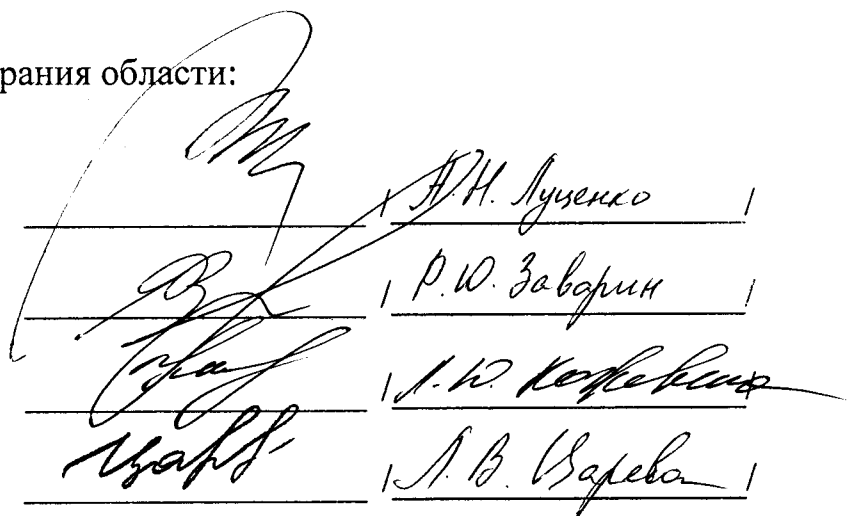 рания области:
А.Н. Луценко
Р.Ю. Заварин
Л.Ю. Кожевина
Л.В. Царева